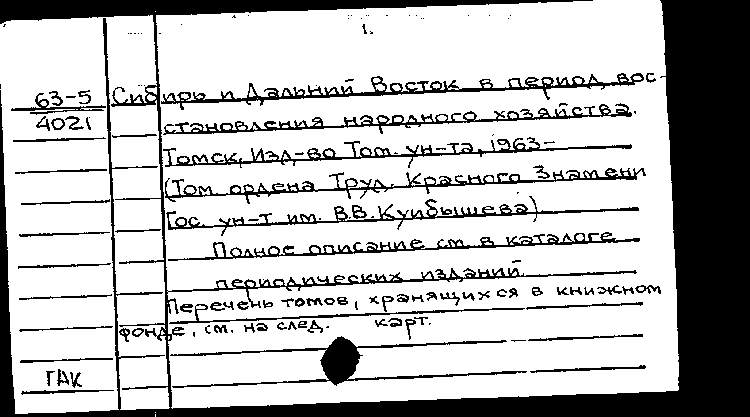 1.
63-5 Сибирь и Дальний Восток в период вос-
4021 становления народного хозяйства.
Томск, Изд-во Том. ун-та, 1963-
(Том. ордена Труд. Красного Знамени
Гос. ун-т им. В.В.Куйбышева)
Полное описание см. в каталоге
периодических изданий.
Перечень томов, хранящихся в книжном
фонде, см. на след. карт.
ГАК